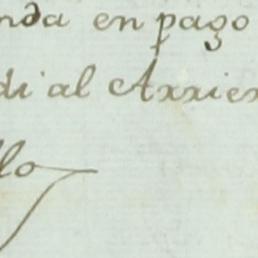 nda en pago
di al Arrien
llo